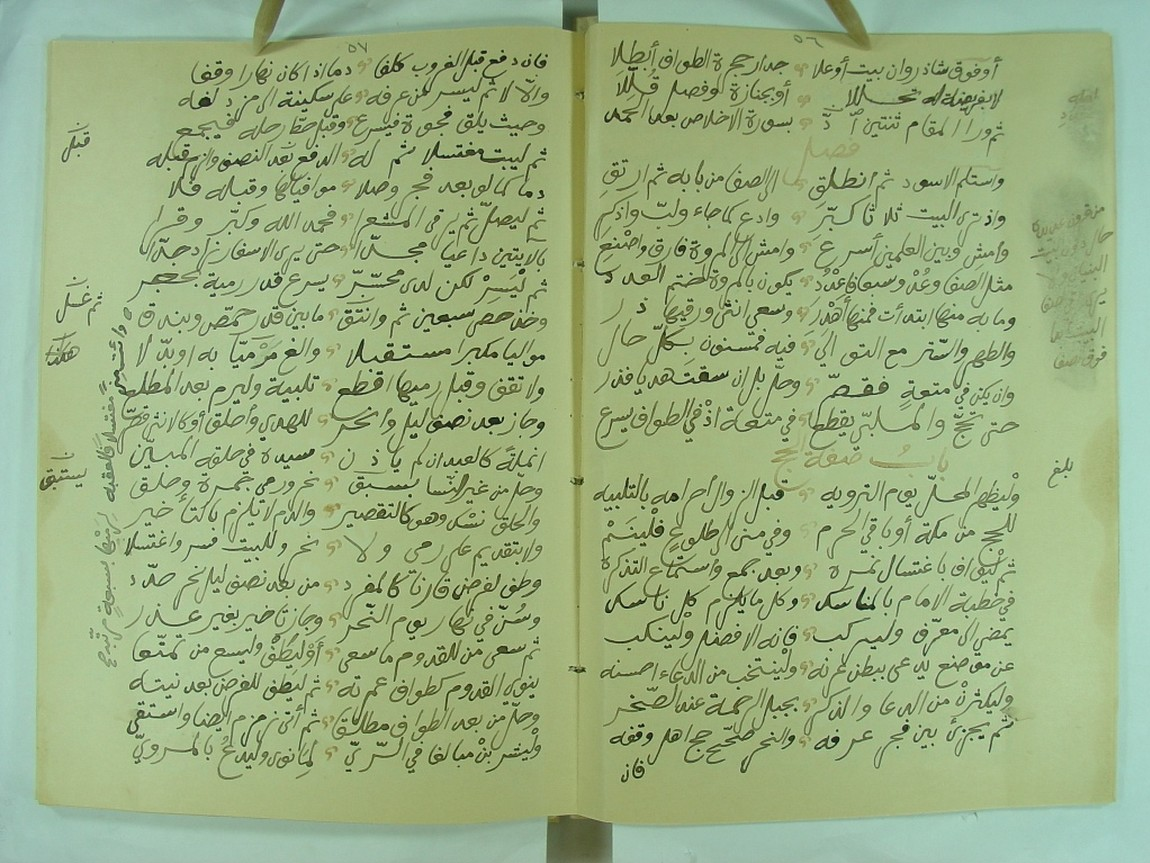 ٥٦
أو فوق شاذروان بيت أو علا جدار حجرة الطواف أبطلا
أو بجنازة وفصل قللا
ثم ورا المقام ثنتين بسورة الاخلاص بعد الحمد
فصل
واستلم الاسود ثم انطلق الى الصفا من بابه ثم ارتق
واذ ترى البيت ثلاثا كبر وادع كما جاء ولب واذكر
وامش وبين العلمين أسرع وامش الى المروة فارق واصنع
مثل الصفا وعد وسبعا فاعدد يكون بالمروة ختم العدد
وما به منها ابتدأت فمنها أهدر وسعي انثى ورقيها ذر
والطهر والستر مع التوالي فيه فمسنون بكل حال
وان يكن في متعة فقصر وحل بل ان سقت هديا فذر
حتى تحج والملبي يقطع في متعة اذ في الطواف يسرع
باب صفة الحج
بلغ
وليظهر المحل يوم الترويه قبل الزوال أحرامه بالتلبيه
للحج من مكة أو باقي الحرم وفي منى الى طلوع فلينم
ثم ليواف باغتسال نمره وبعد جمع واستماع التذكره
في خطبة الامام بالمناسك وكل ما يلزم كل ناسك
يمضي الى معرف وليركب فانه الافضل ولينكب
عن موضع يدعى ببطن عرنه ولينتخب من الدعاء احسنه
وليكثرن من الدعا والذكر بجبل الرحمة عند الصخر
ثم يجزئ بين فجر عرفه والنحر صحح حج اهل وقفه
فان
٥٧
فان دفع قبل الغروب كلفا دما اذا كان نهارا وقفا
والا لا ثم ليسر من عرفه على سكينة الى مزدلفه
وحيث يلق فجوة فيسرع وقبل حط رحله فيجمع
ثم ليبت مغتسلا ثم له الدفع بعد النصف والزم قبله
دما كما لو بعد فجر وصلا موافيا لها وقبله فلا
ثم ليصل ثم يرقى المشعرا فحمد الله وكبر وقرا
بالايتين داعيا مجدا حتى يرى الاسفار
ثم ليسر لكن لدى محسر يسرع قدر رمية بحجر
وخذ حصى سبعين ثم وانتق ما بين قدر حمص وبندق
مواليا مكبرا مستقبلا والغ رميا به أو بدلا
ولا تقف وقبل رميها اقطع تلبية وليرم بعد المطلع
وجاز بعد نصف ليل وانحر للهدي وأحلق أو كالانثى قصر
انملة كالعبد ان لم ياذن سيده في حلقه المبين
وحل من غير النسا بسبق نحر ورمي جمرة وحلق
والحلق نسك وهو كالتقصير والدم لا تلزم باكتأخير
ولا بتقديم على رمي ولا نحر وللبيت فسر واغتسلا
وطف لفرض قارنا كالمفرد من بعد نصف ليل نحر حدد
وسن في نهار يوم النحر وجاز تاخير بغير عذر
ثم سعى من للقدوم ما سعى أو ليطف وليسع من تمتعا
ينوي القدوم كطواف عمرته ثم ليطف للفرض بعد نيته
وحل من بعد الطواف مطلقا ثم أتى زمزم ايضا واستقى
وليشربن مبالغا في الري لما نوى وليدع بالمروي
قبل
ثم غسل
هكذا
يستبق